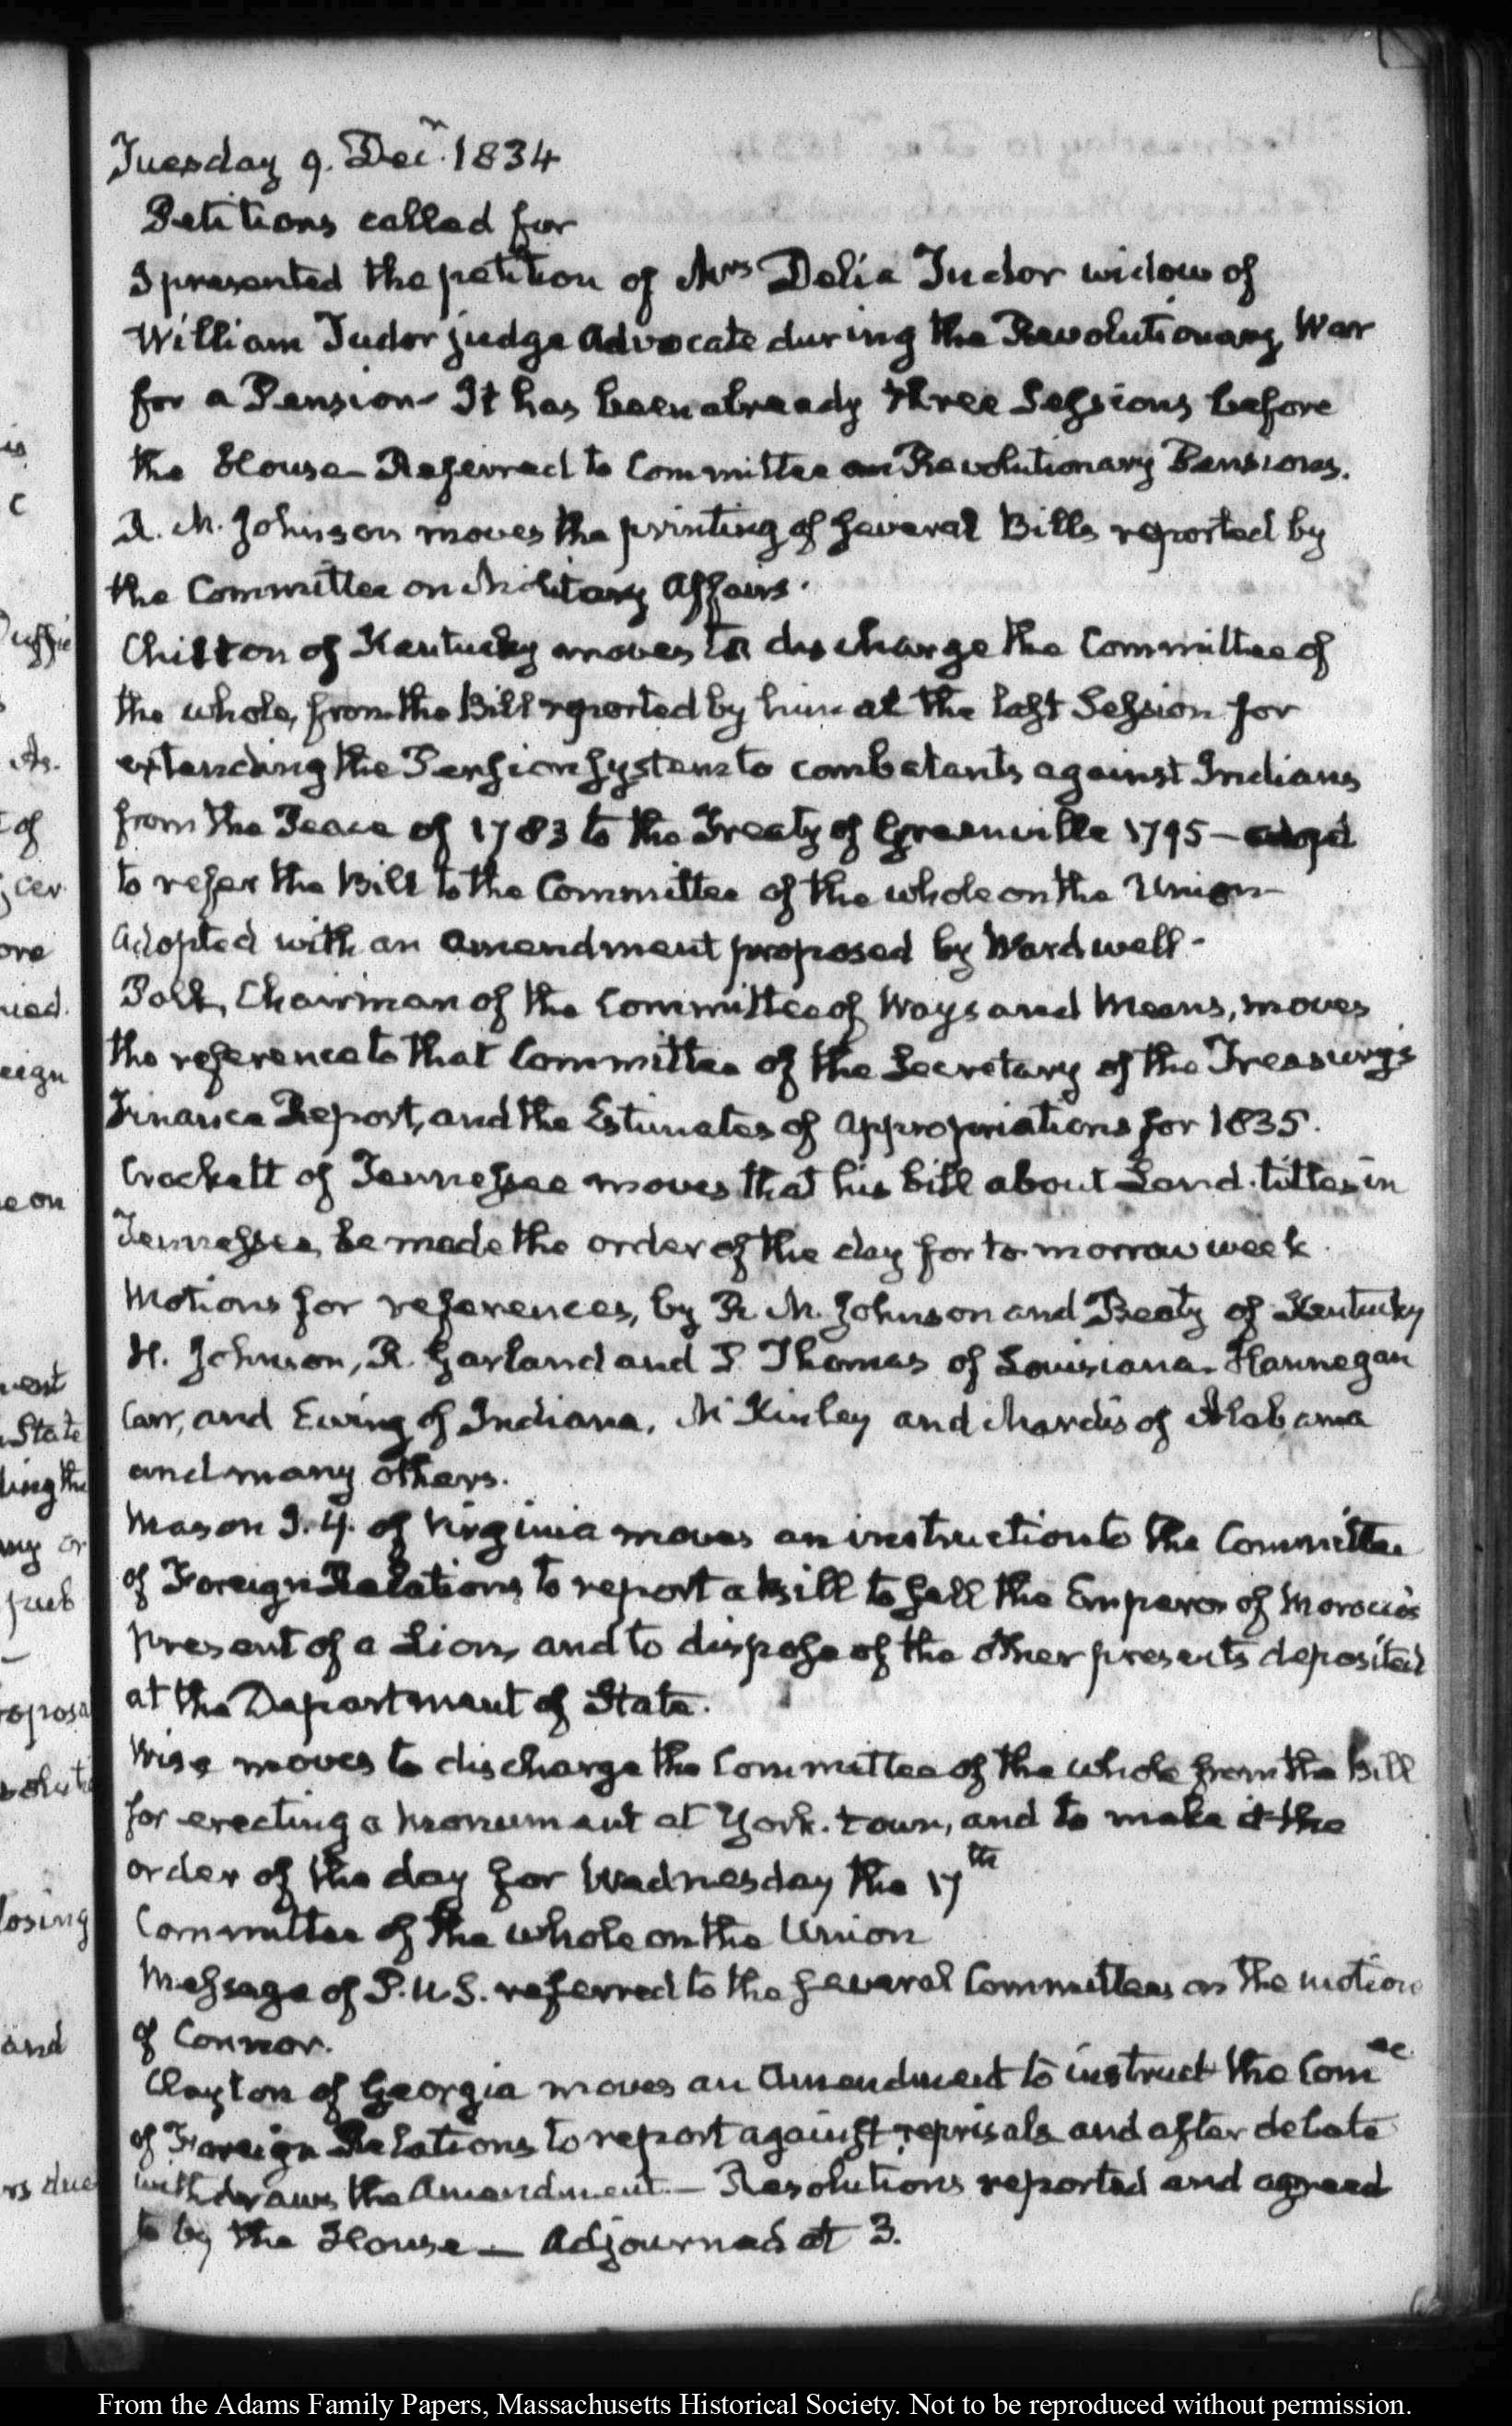 Tuesday 9. Decr. 1834
Petitions called for
I presented the petition of Mrs Delia Tudor widow of
William Tudor judge Advocate during the Revolutionary War
for a Pension— It has been already three Sessions before
the House— Referred to Committee on Revolutionary Pensions.
R. M. Johnson moves the printing of several Bills reported by
the Committee on Military Affairs.
Chilton of Kentucky moves to discharge the Committee of
the whole, from the Bill reported by him at the last Session for
extending the Pension system to combatants against Indians
from the Peace of 1783 to the Treaty of Greenville 1795—
to refer the Bill to the Committee of the whole on the Union—
Adopted with an amendment proposed by Wardwell—
Polk, Chairman of the Committee of Ways and Means, moves
the reference to that Committee of the Secretary of the Treasury's
Finance Report, and the Estimates of appropriations for 1835.
Crockett of Tennessee moves that his bill about Land-titles in
Tennessee, be made the order of the day for to-morrow week.
Motions for references, by R. M. Johnson and Beaty of Kentucky
H. Johnson, R. Garland and P. Thomas of Louisiana. Hannegan
Carr, and Ewing of Indiana, McKinley and Mardis of Alabama
and many others.
Mason J. Y. of Virginia moves an instruction to the Committee
of Foreign Relations to report a bill to sell the Emperor of Morocco's
present of a Lion, and to dispose of the other presents deposited
at the Department of State.
Wise moves to discharge the Committee of the whole from the bill
for erecting a monument at York-town, and to make it the
order of the day for Wednesday the 17th
Committee of the whole on the Union
Message of P.U.S. referred to the several Committees on the motion
of Connor.
Clayton of Georgia moves an Amendment to instruct the Comee
of Foreign Relations to report against reprisals and after debate
withdraws the Amendment— Resolutions reported and agreed
to by the House— Adjourned at 3.
From the Adams Family Papers, Massachusetts Historical Society. Not to be reproduced without permission.